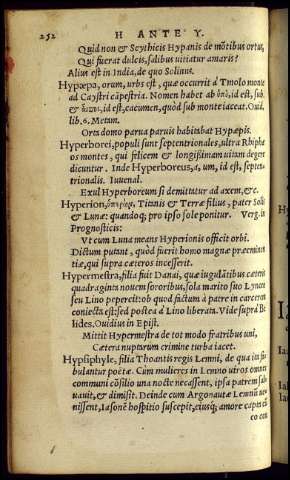 252 H ANTE Y.
Quid non & Scythicis Hypanis de mõtibus ortus,
Qui fuerat dulcis, salibus vitiatur amaris?
Alius est in India, de quo Solinus.
Hypæpa, orum, urbs est, quæ occurrit à Tmolo monte
ad Caystri cãpestria. Nomen habet ab ὑπὸ, id est, sub,
& id est, cacumen, quòd sub monte iaceat. Ouid.
lib. 6. Metam.
Orta domo parua paruis habitabat Hypæpis.
Hyperborei, populi sunt septentrionales, ultra Rhiphæ
os montes, qui felicem & longißimam uitam degere
dicuntur. Inde Hyperboreus, a, um, id est, septen-
trionalis. Iuuenal.
Exul Hyperboreum si demittatur ad axem, &c.
Hyperion, Titanis & Terræ filius, pater Solis
& Lunæ: quandoq; pro ipso sole ponitur. Verg. in
Prognosticis:
Vt cum Luna means Hyperionis officit orbi.
Dictum putant, quòd fuerit homo magnæ præeminen
tiæ, qui supra cæteros incesserit.
Hypermestra, filia fuit Danai, quæ iugulãtibus cæteris
quadraginta nouem sororibus, sola marito suo Lynceo
seu Lino pepercit: ob quod factum à patre in carcerem
coniecta est: sed postea à Lino liberata. Vide supra Be
lides. Ouidius in Epist.
Mittit Hypermestra de tot modo fratribus uni,
Cætera nuptarum crimine turba iacet.
Hypsiphyle, filia Thoantis regis Lemni, de qua ita fa-
bulantur poëtæ. Cum mulieres in Lemno uiros omnes
communi cõsilio una nocte necassent, ipsa patrem sal-
uauit, & dimisit. Deinde cum Argonautæ Lemnũ ue-
nissent, Iasonẽ hospitio suscepit, eiusq; amore capta